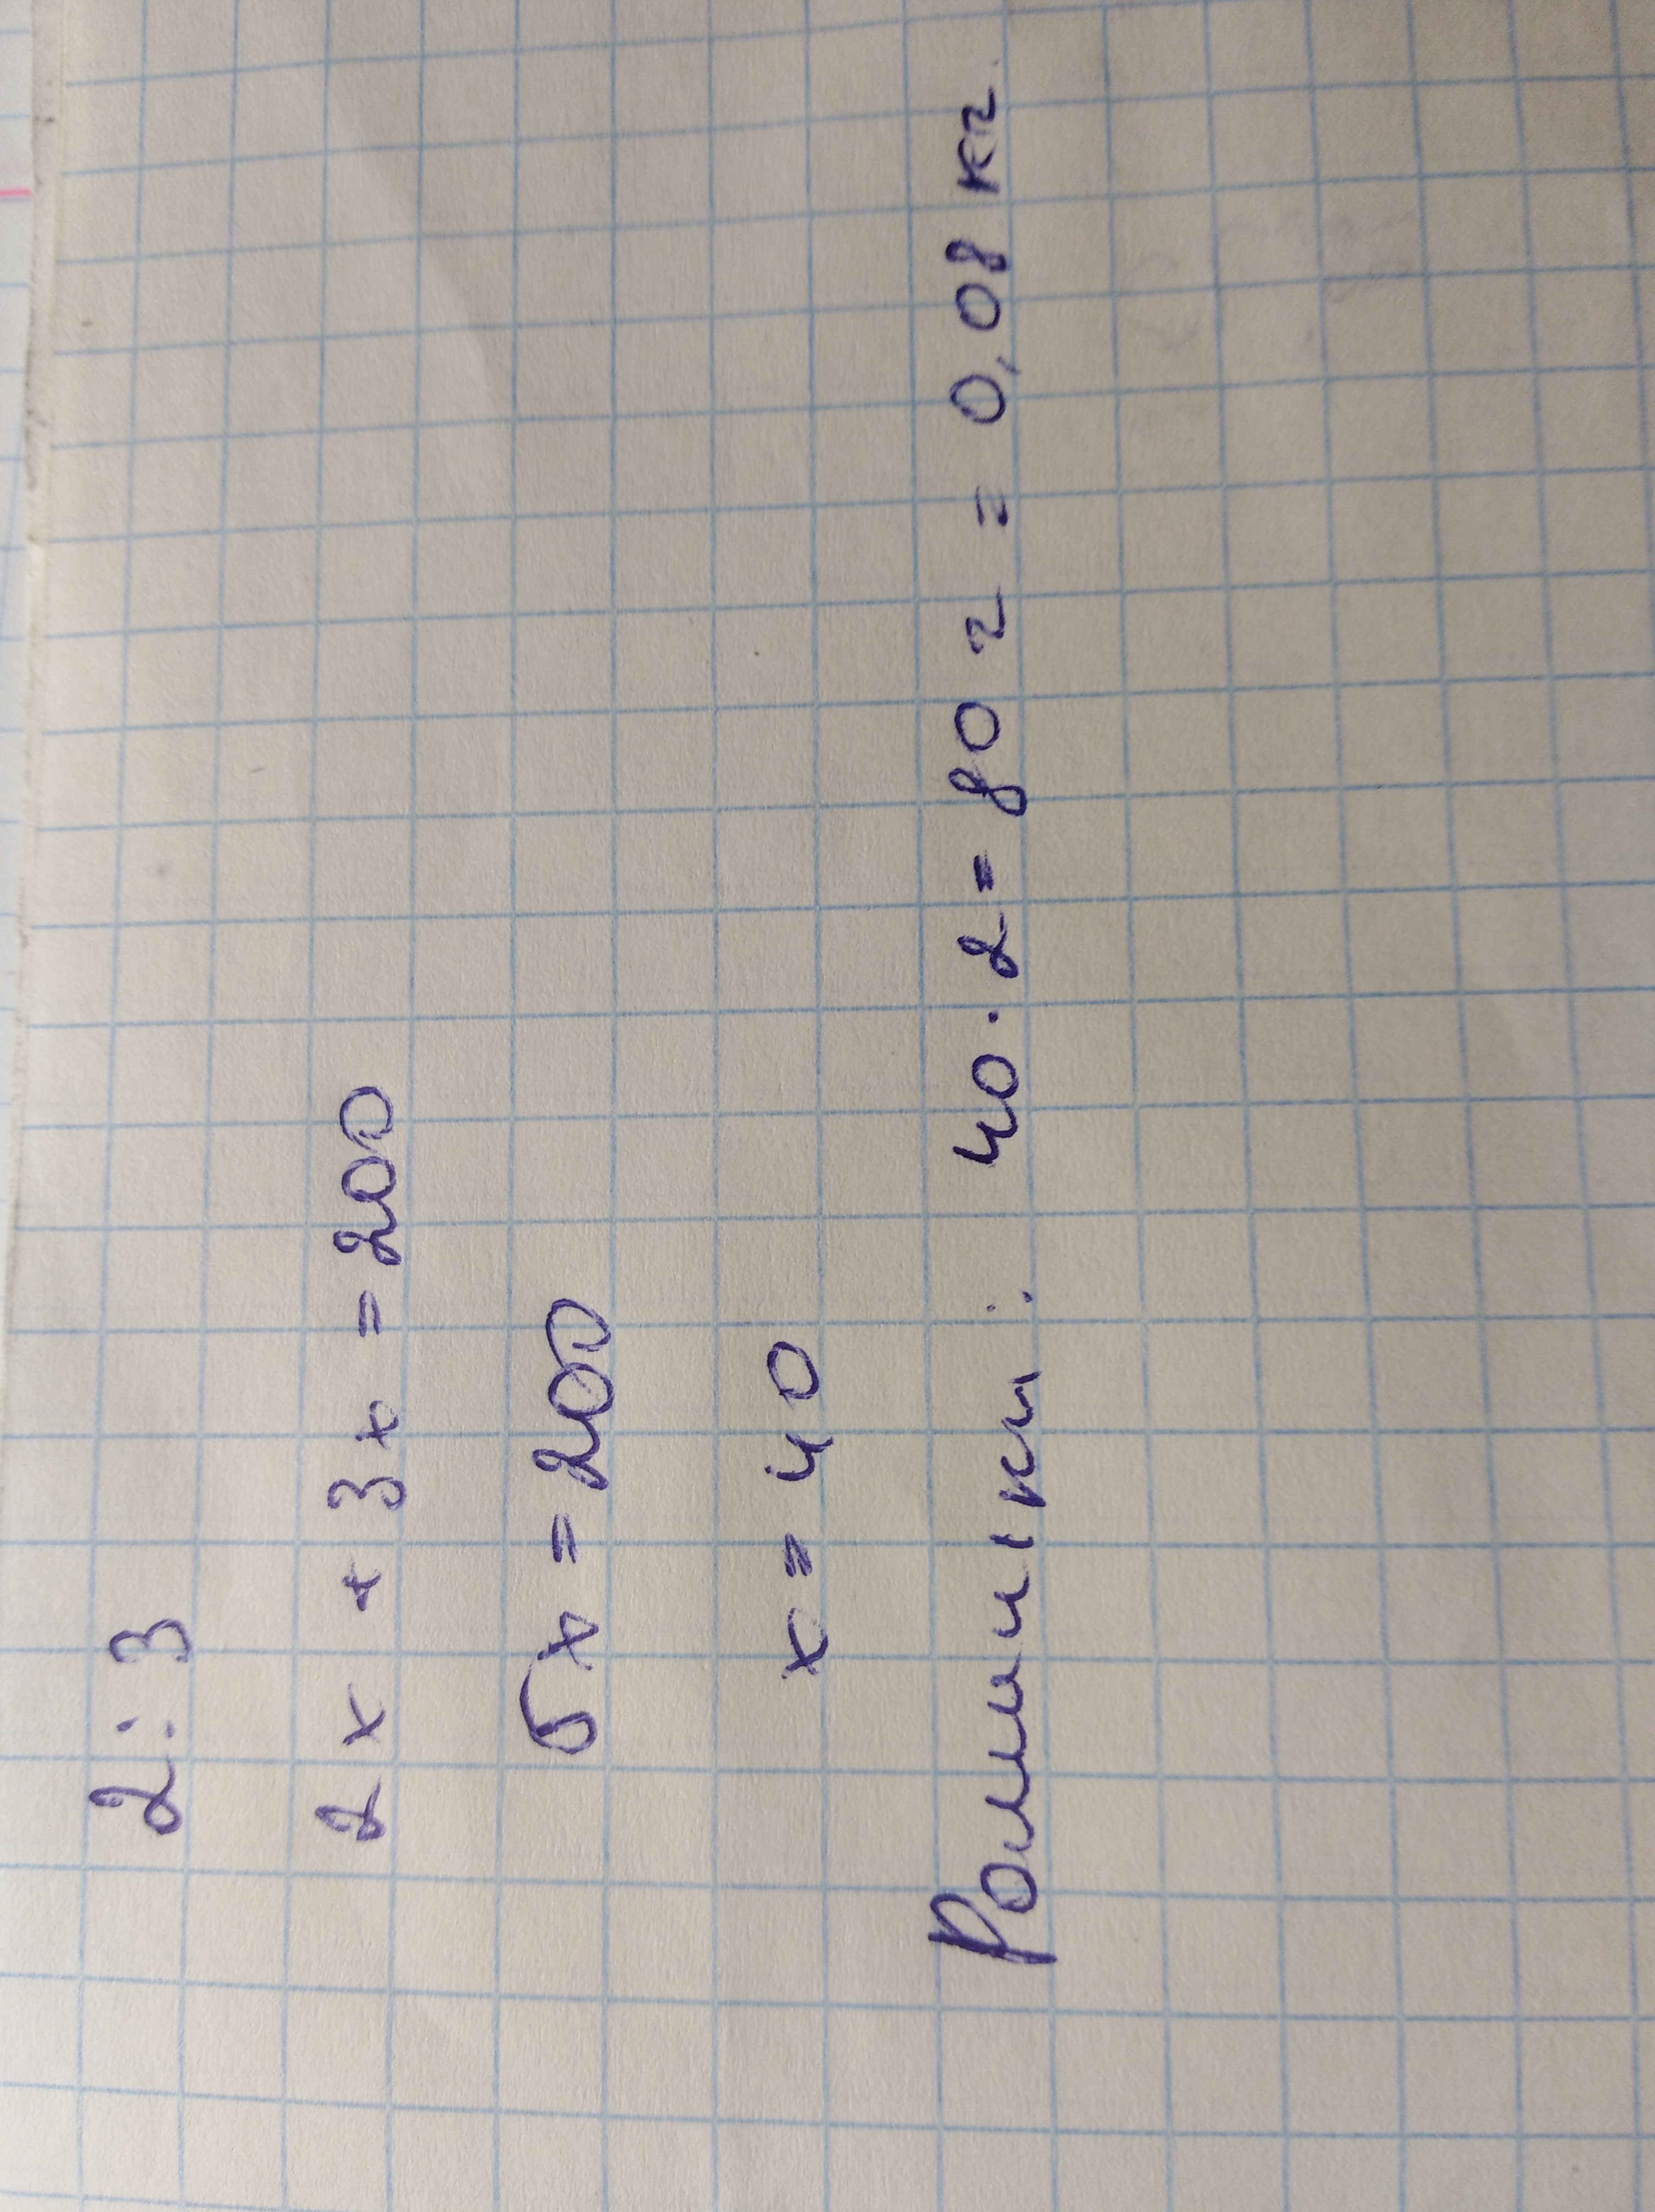 2:3
2x + 3x = 200
5x = 200
x = 40
Ромашки: 40·2= 80 г = 0,08 кг.